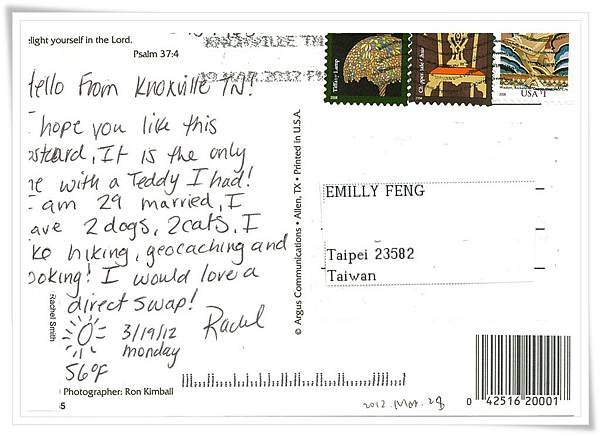 elight yourself in the Lord.
Psalm 37:4
Hello From Knoxville TN!
I hope you like this
ostcard, It is the only
ne with a Teddy I had!
I am 29 married, I
ave 2 dogs, 2 cats, I
ke hiking, geocaching and
ooking! I would love a
direct swap!
3/19/12 Rachel
monday
56°F
Rachel Smith
Photographer: Ron Kimball
© Argus Communications • Allen, TX • Printed in U.S.A.
USA $1
EMILLY FENG
Taipei 23582
Taiwan
2012. Mar. 28
0 42516 20001